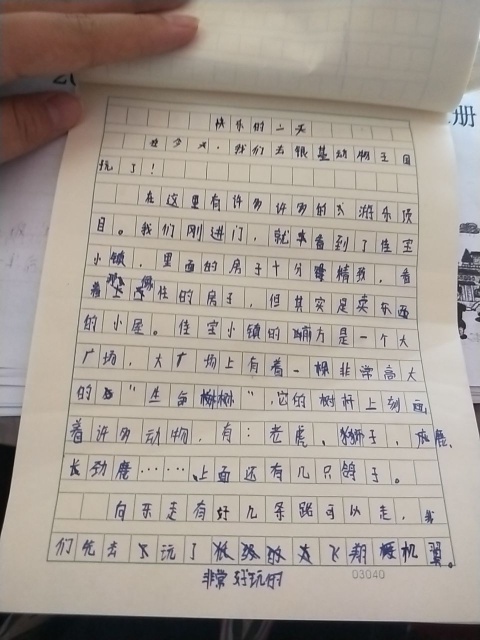 册
快乐的一天
我们去银基动物王国
玩了！
在这里有许多许多的游乐项
目。我们刚进门，就看到了佳宝
小镇，里面的房子十分精致，看
着住的房子，但其实是卖东西
的小屋。佳宝小镇的前方是一个大
广场，大广场上有着一棵非常高大
的"生命树"，它的树杆上刻画
着许多动物，有：老虎、狮子、麋鹿、
长劲鹿……上面还有几只鸽子。
向东走有好几条路可以走，我
们先去玩了飞翔机翼。
非常好玩的
03040